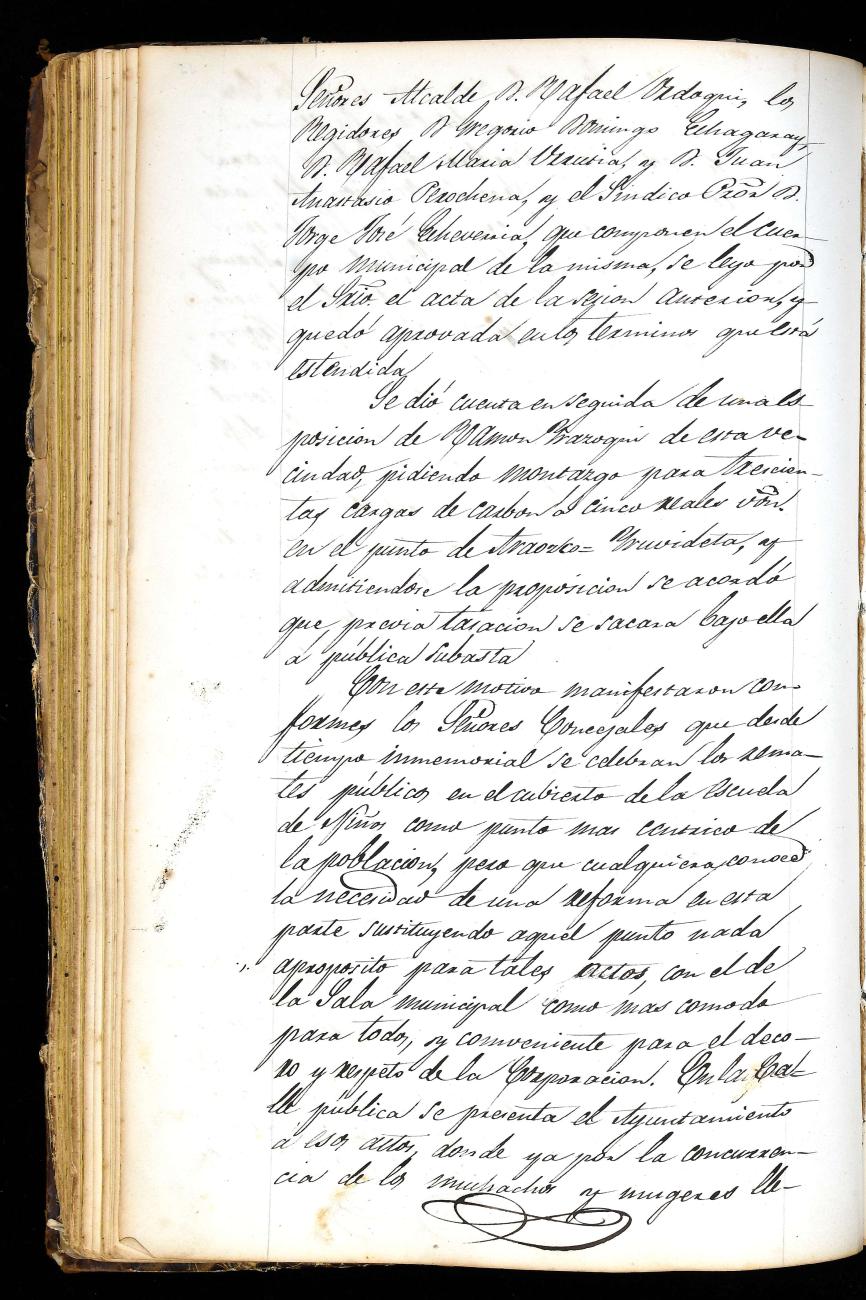 Señores Alcalde D. Rafael Urdoqui, los
Regidores D Gregorio Domingo Echagaray,
D. Rafael Maria Urrutia, y D. Juan
Anastasio Perochena, y el Sindico Pror D.
Jorge José Echeverria, que componen el cuer-
po municipal de la misma, se leyo por
el Srio. el acta de la sesion anterior, y
quedó aprovada en los terminos que está
estendida
Se dió cuenta en seguida de una es-
posicion de Ramon Yrazoqui de esta ve-
cindad, pidiendo montazgo para trescien-
tas cargas de carbon a cinco reales von.
en el punto de Yruvideta, y
admitiendose la proposicion se acordó
que, previa tasacion se sacara bajo ella
a publica subasta
Con este motivo manifestaron con-
formes los Señores Concejales que desde
tiempo inmemorial se celebran los rema-
tes públicos en el cubierto de la escuela
de Niños como punto mas centrico de
la poblacion, pero que cualquiera conoce
la necesidad de una reforma en esta
parte sustituyendo aquel punto nada
aproposito para tales actos, con el de
la Sala municipal como mas comodo
para todos, y conveniente para el deco-
ro y respeto de la Corporacion. En la Ca-
lle pública se presenta el Ayuntamiento
a esos actos, donde ya por la concurren-
cia de los muchachos y mugeres lle-